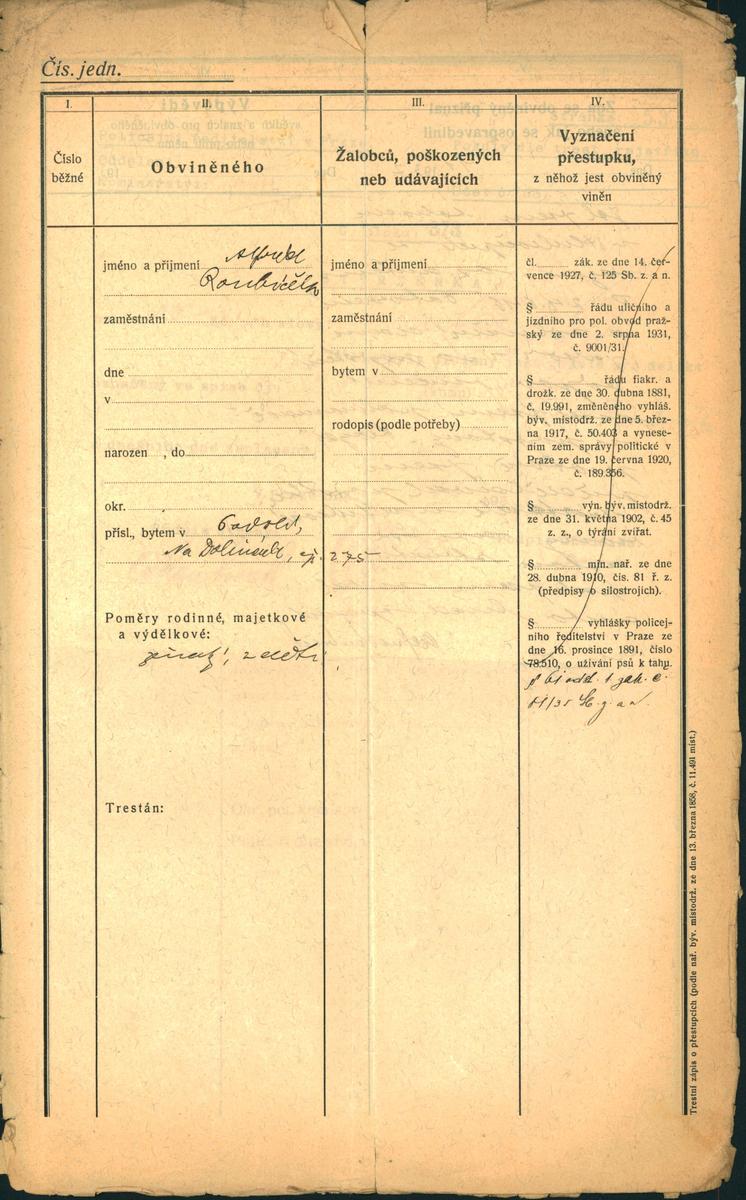 Čís. jedn.
I.
Číslo
běžné
II.
Obviněného
III.
Žalobců, poškozených
neb udávajících
IV.
Vyznačení
přestupku,
z něhož jest obviněný
viněn
jméno a přijmení Alfréd
Roubíček
zaměstnání
dne
v
narozen , do
okr.
přísl., bytem v Podolí,
Na Dolinách, čp. 275
Poměry rodinné, majetkové
a výdělkové:
ženatý, 2 děti
Trestán:
jméno a přijmení
zaměstnání
bytem v
rodopis (podle potřeby)
čl. zák. ze dne 14. čer-
vence 1927, č. 125 Sb. z. a n.
§ řádu uličního a
jízdního pro pol. obvod praž-
ský ze dne 2. srpna 1931,
č. 9001/31.
§ řádu fiakr. a
drožk. ze dne 30. dubna 1881,
č. 19.991, změněného vyhláš.
býv. místodrž. ze dne 5. břez-
na 1917, č. 50.403 a vynese-
ním zem. správy politické v
Praze ze dne 19. června 1920,
č. 189.356.
§ výn. býv. místodrž.
ze dne 31. května 1902, č. 45
z. z., o týrání zvířat.
§ min. nař. ze dne
28. dubna 1910, čís. 81 ř. z.
(předpisy o silostrojích).
§ vyhlášky policej-
ního ředitelství v Praze ze
dne 16. prosince 1891, číslo
78.510, o užívání psů k tahu.
odd. 1 zák. č.
Sb. z. a n.
Trestní zápis o přestupcích (podle nař. býv. místodrž. ze dne 13. března 1858, č. 11.491 míst.)